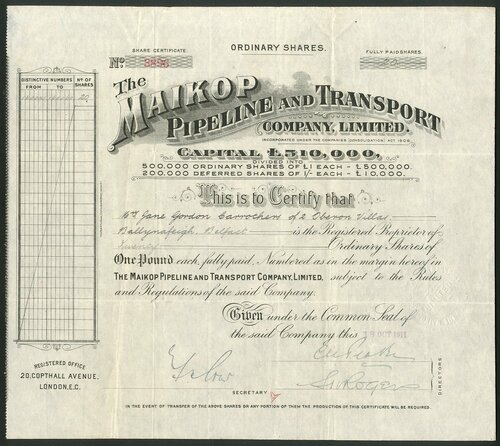 SHARE CERTIFICATE.
ORDINARY SHARES.
FULLY PAID SHARES.
No.
20
DISTINCTIVE NUMBERS
No. OF SHARES
FROM TO
20
The
MAIKOP
PIPELINE AND TRANSPORT
COMPANY, LIMITED.
INCORPORATED UNDER THE COMPANIES (CONSOLIDATION) ACT 1908.
CAPITAL £510,000,
DIVIDED INTO
500,000 ORDINARY SHARES OF £1 EACH - £500,000.
200,000 DEFERRED SHARES OF 1/- EACH - £10,000.
This is to Certify that
Jane Gordon of 2 Oberon Villas
Ballynafeigh, Belfast is the Registered Proprietor of
Twenty Ordinary Shares of
One Pound each, fully paid, Numbered as in the margin hereof in
THE MAIKOP PIPELINE AND TRANSPORT COMPANY, LIMITED, subject to the Rules
and Regulations of the said Company.
Given under the Common Seal of
the said Company this 18 OCT 1911
DIRECTORS
S. Rogers
SECRETARY
REGISTERED OFFICE
20, COPTHALL AVENUE,
LONDON, E.C.
IN THE EVENT OF TRANSFER OF THE ABOVE SHARES OR ANY PORTION OF THEM THE PRODUCTION OF THIS CERTIFICATE WILL BE REQUIRED.